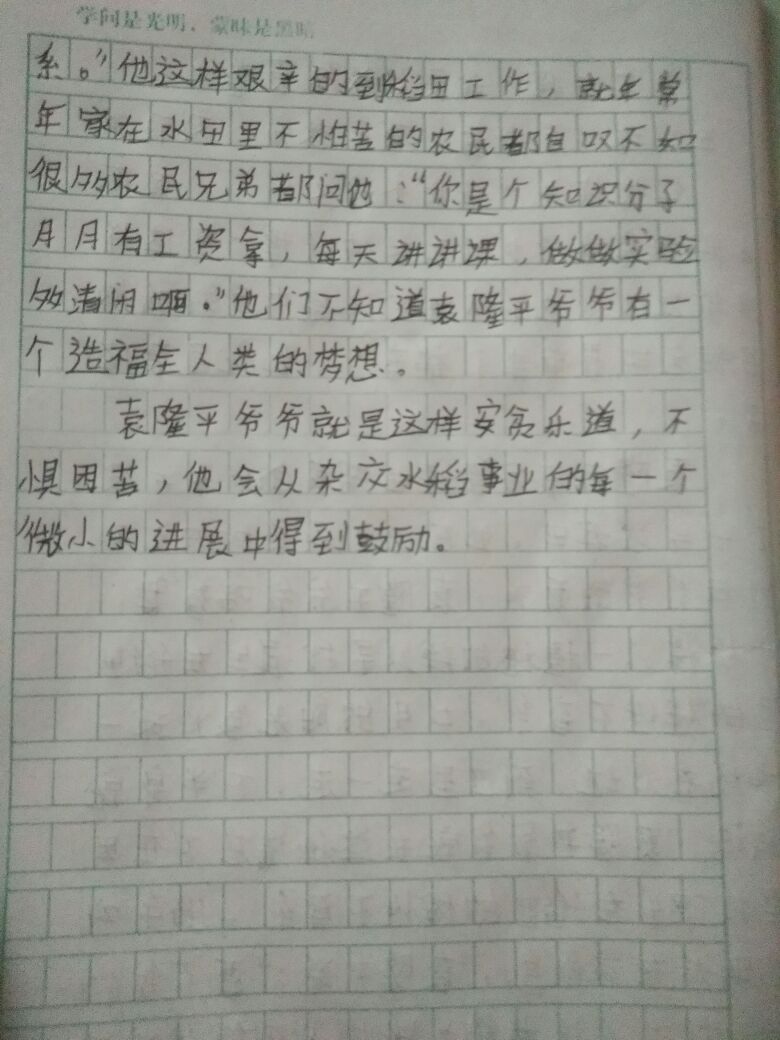 学问是光明，蒙昧是黑暗
系。”他这样艰辛的到稻田工作，就连常
年家在水田里不怕苦的农民都自叹不如
很多农民兄弟都问他：“你是个知识分子
月月有工资拿，每天讲讲课，做做实验
多清闲啊。”他们不知道袁隆平爷爷有一
个造福全人类的梦想。
袁隆平爷爷就是这样安贫乐道，不
惧困苦，他会从杂交水稻事业的每一个
微小的进展中得到鼓励。